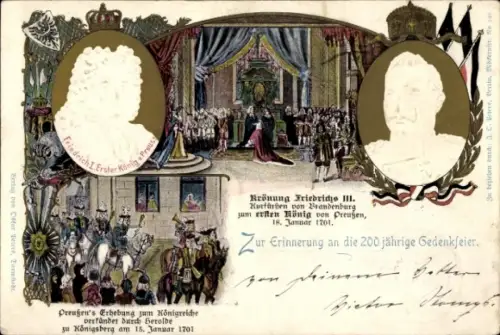 Friedrich I. Erster König v. Preuß.
Krönung Friedrichs III.
Kurfürsten von Brandenburg
zum ersten König von Preußen,
18. Januar 1701.
Zur Erinnerung an die 200 jährige Gedenkfeier.
von Deinem Vetter
Preußen's Erhebung zum Königreiche
verkündet durch Herolde
zu Königsberg am 15. Januar 1701